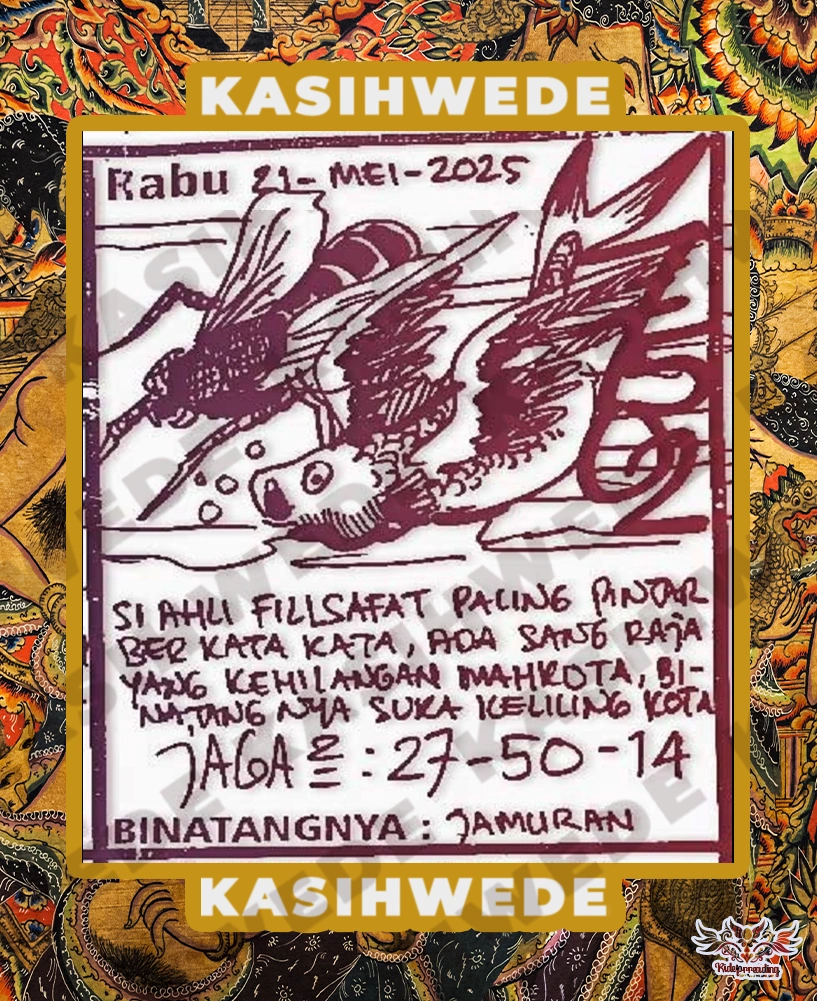 KASIHWEDE
Rabu 21-MEI-2025
SI AHLI FILLSAFAT PALING PINTAR
BER KATA KATA, ADA SANG RAJA
YANG KEHILANGAN MAHKOTA, BI-
NATANG NYA SUKA KELILING KOTA
JAGA2 = : 27-50-14
BINATANGNYA : JAMURAN
KASIHWEDE